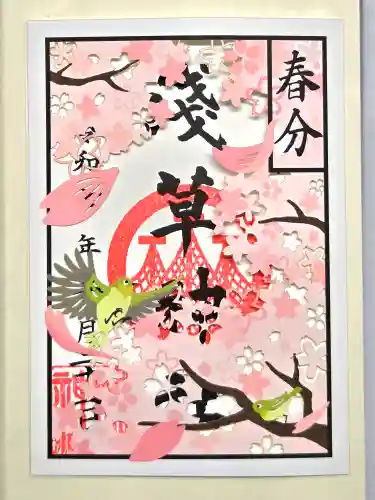 春分
淺草神社
令和 年 月二十日